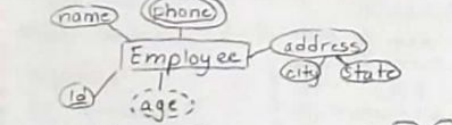 name
phone
Employee
address
city
state
id
age